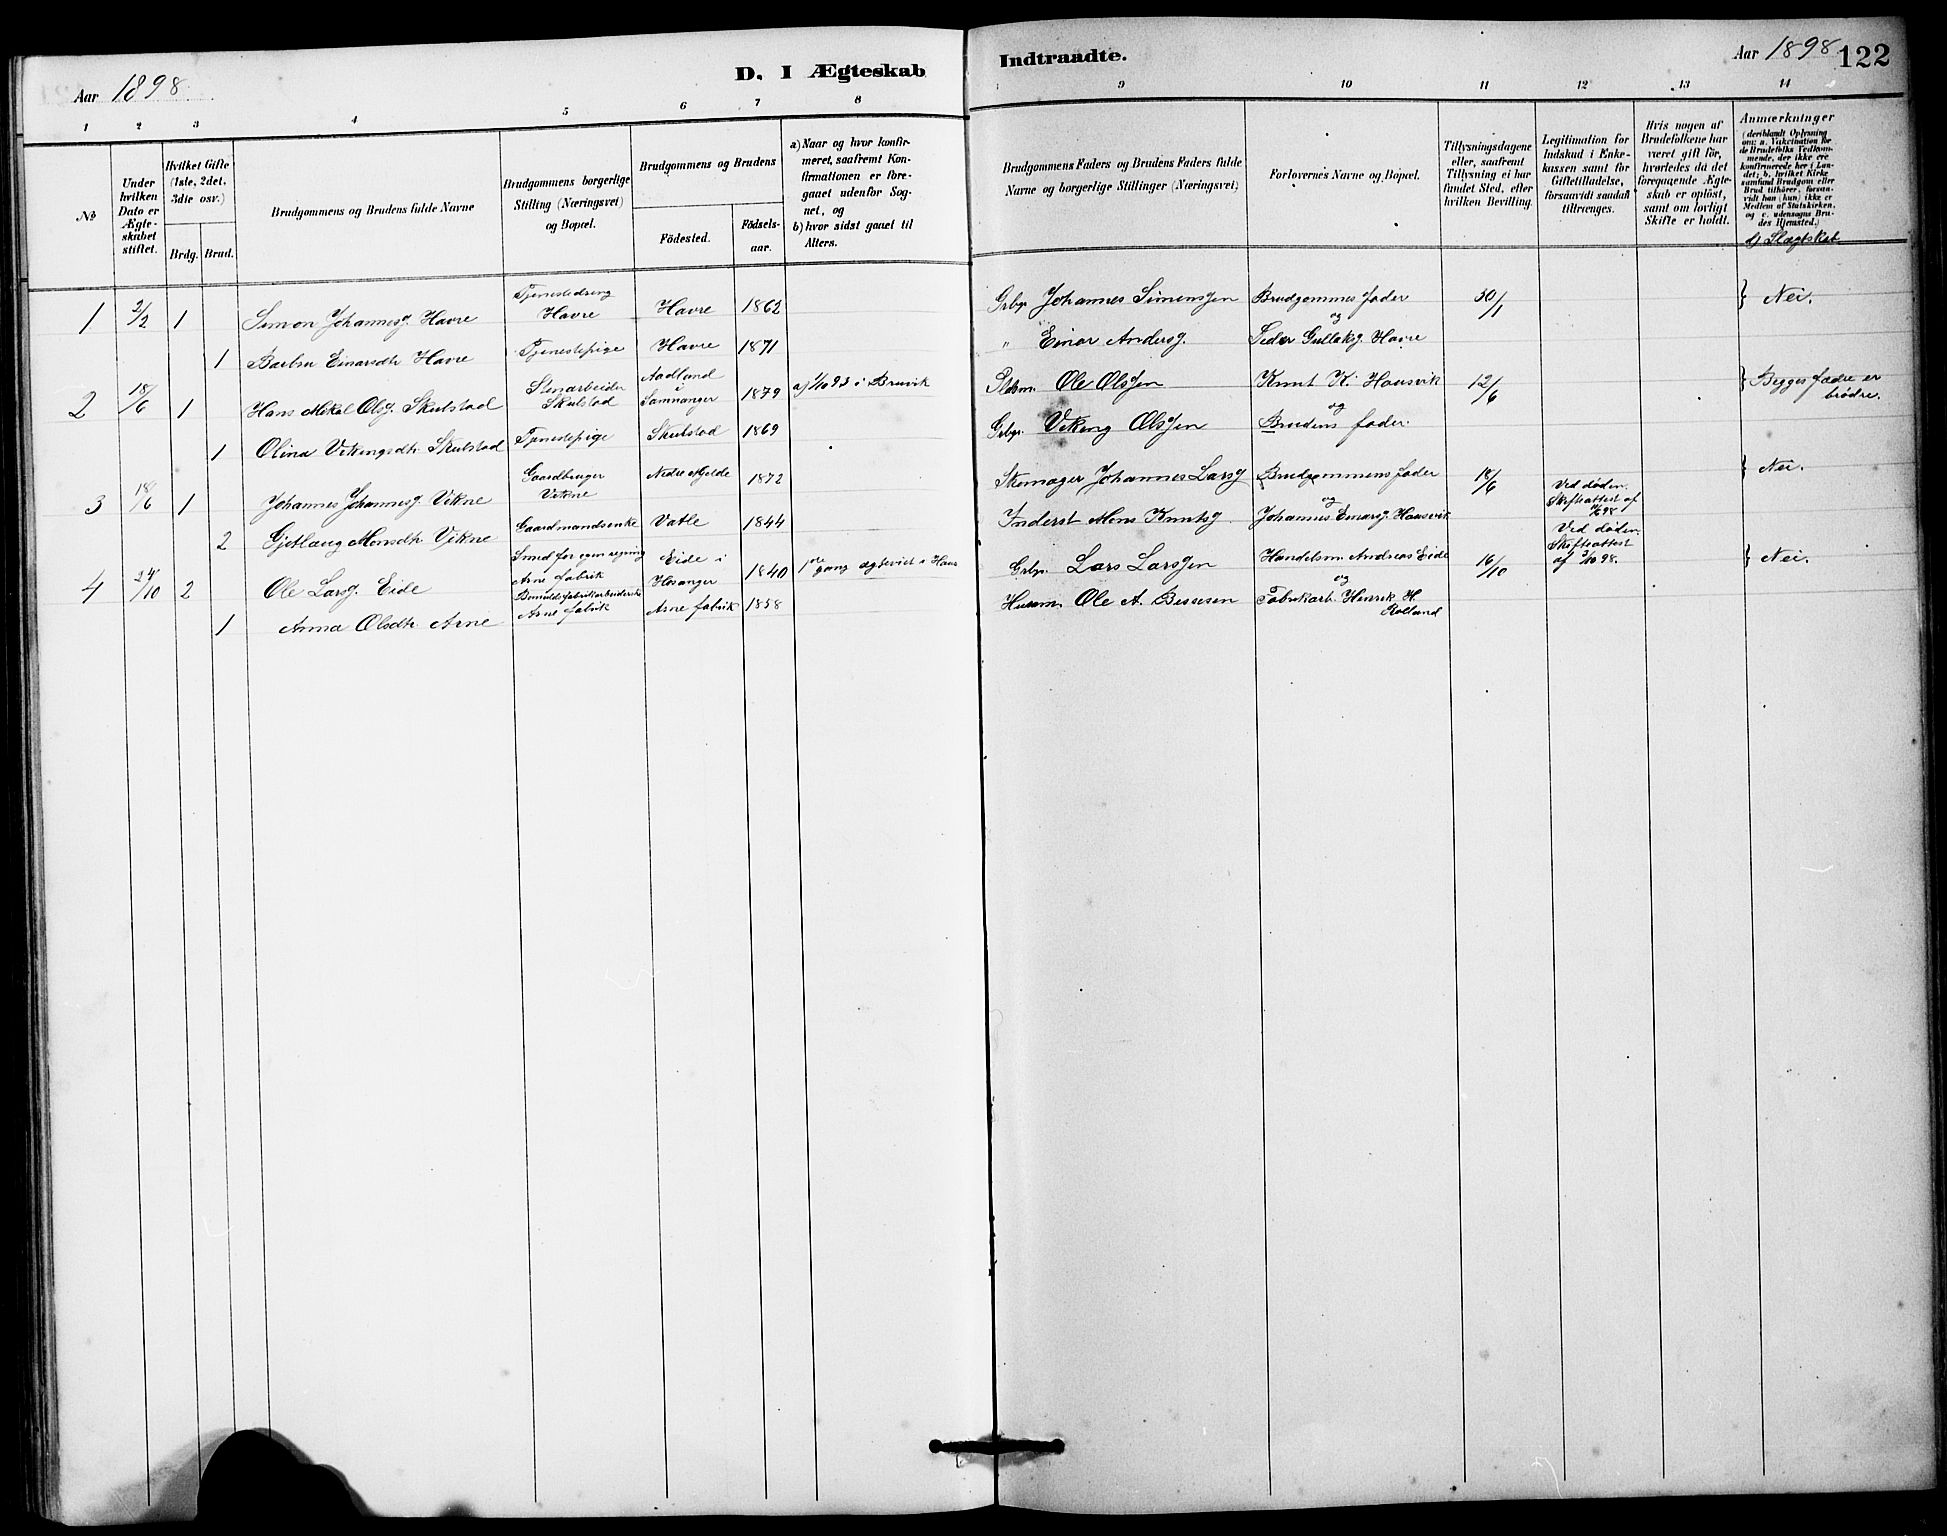 D. I Ægteskab Indtraadte.
Aar 1898
Aar 1898
122
1 2 3 4 5 6 7 8 9 10 11 12 13 14
No
Under hvilken Dato er Ægteskabet stiftet.
Hvilket Gifte (1ste, 2det, 3die osv.)
Brdg. Brud.
Brudgommens og Brudens fulde Navne
Brudgommens borgerlige Stilling (Næringsvei) og Bopæl.
Brudgommens og Brudens
Födested.
Födselsaar.
a) Naar og hvor konfirmeret, saafremt Konfirmationen er foregaaet udenfor Sognet, og
b) hvor sidst gaaet til Alters.
Brudgommens Faders og Brudens Faders fulde Navne og borgerlige Stillinger (Næringsvei)
Forlovernes Navne og Bopæl.
Tillysningsdagene eller, saafremt Tillysning ei har fundet Sted, efter hvilken Bevilling.
Legitimation for Indskud i Enkekassen samt för Giftetilladelse, forsaavidt saadan tiltrænges.
Hvis nogen af Brudefolkene har været gift för, hvorledes da det foregaaende Ægteskab er oplöst, samt om lovligt Skifte er holdt.
Anmærkninger
(deriblandt Oplysning om: a. Vakcination for de Brudefolks Vedkommende, der ikke ere konfirmerede her i Landet; b. hvilket Kirkesamfund Brudgom eller Brud tilhörer, forsaavidt han (hun) ikke er Medlem af Statskirken, og c. udensogns Brudes Hjemsted.)
d) Slægtskab
1 2/2 1 Simon Johannesg. Havre Tjenestedreng Havre Havre 1862 Grbgr. Johannes Simonsen Brudgommes fader 30/1 } Nei.
1 Barbra Einarsdtr Havre Tjenestepige Havre 1871 " Einar Andersg. og Peder Gullaksg. Havre
2 18/6 1 Hans Mikal Olsg. Skulstad Stenarbeider Skulstad Aadland i Samnanger 1879 a) 1/10 93 i Bruvik Ole Olsen Knut K. Hausvik 12/6 } Begges fædre er brödre.
1 Olina Vikingsdtr. Skulstad Tjenestepige Skulstad 1869 Grbgr. Viking Olsen og Brudens fader.
3 18/6 1 Johannes Johannesg. Vikne Gaardbruger Vikne Nedre Mjelde 1872 Skomager Johannes Larsg Brudgommens fader 18/6 } Nei.
2 Gjetlaug Monsdtr. Vikne Gaardmandsenke Vatle 1844 Inderst Mons Knutsg. og Johannes Einarsg. Hausvik Ved döden. Skifteattest af
4 24/10 2 Ole Larsg. Eide Smed for egen regning Arne fabrik Eide i Hosanger 1840 1ste gang ægteviet i Haus Grbgr. Lars Larsen Handelsm. Andreas Eide 16/10 Ved döden. Skifteattest af 3/10 98. } Nei.
1 Anna Olsdtr. Arne Bomuldsfabrikarbeiderske Arne fabrik Arne fabrik 1858 Husm. Ole A. og Fabrikarb. Henrik H. Rolland